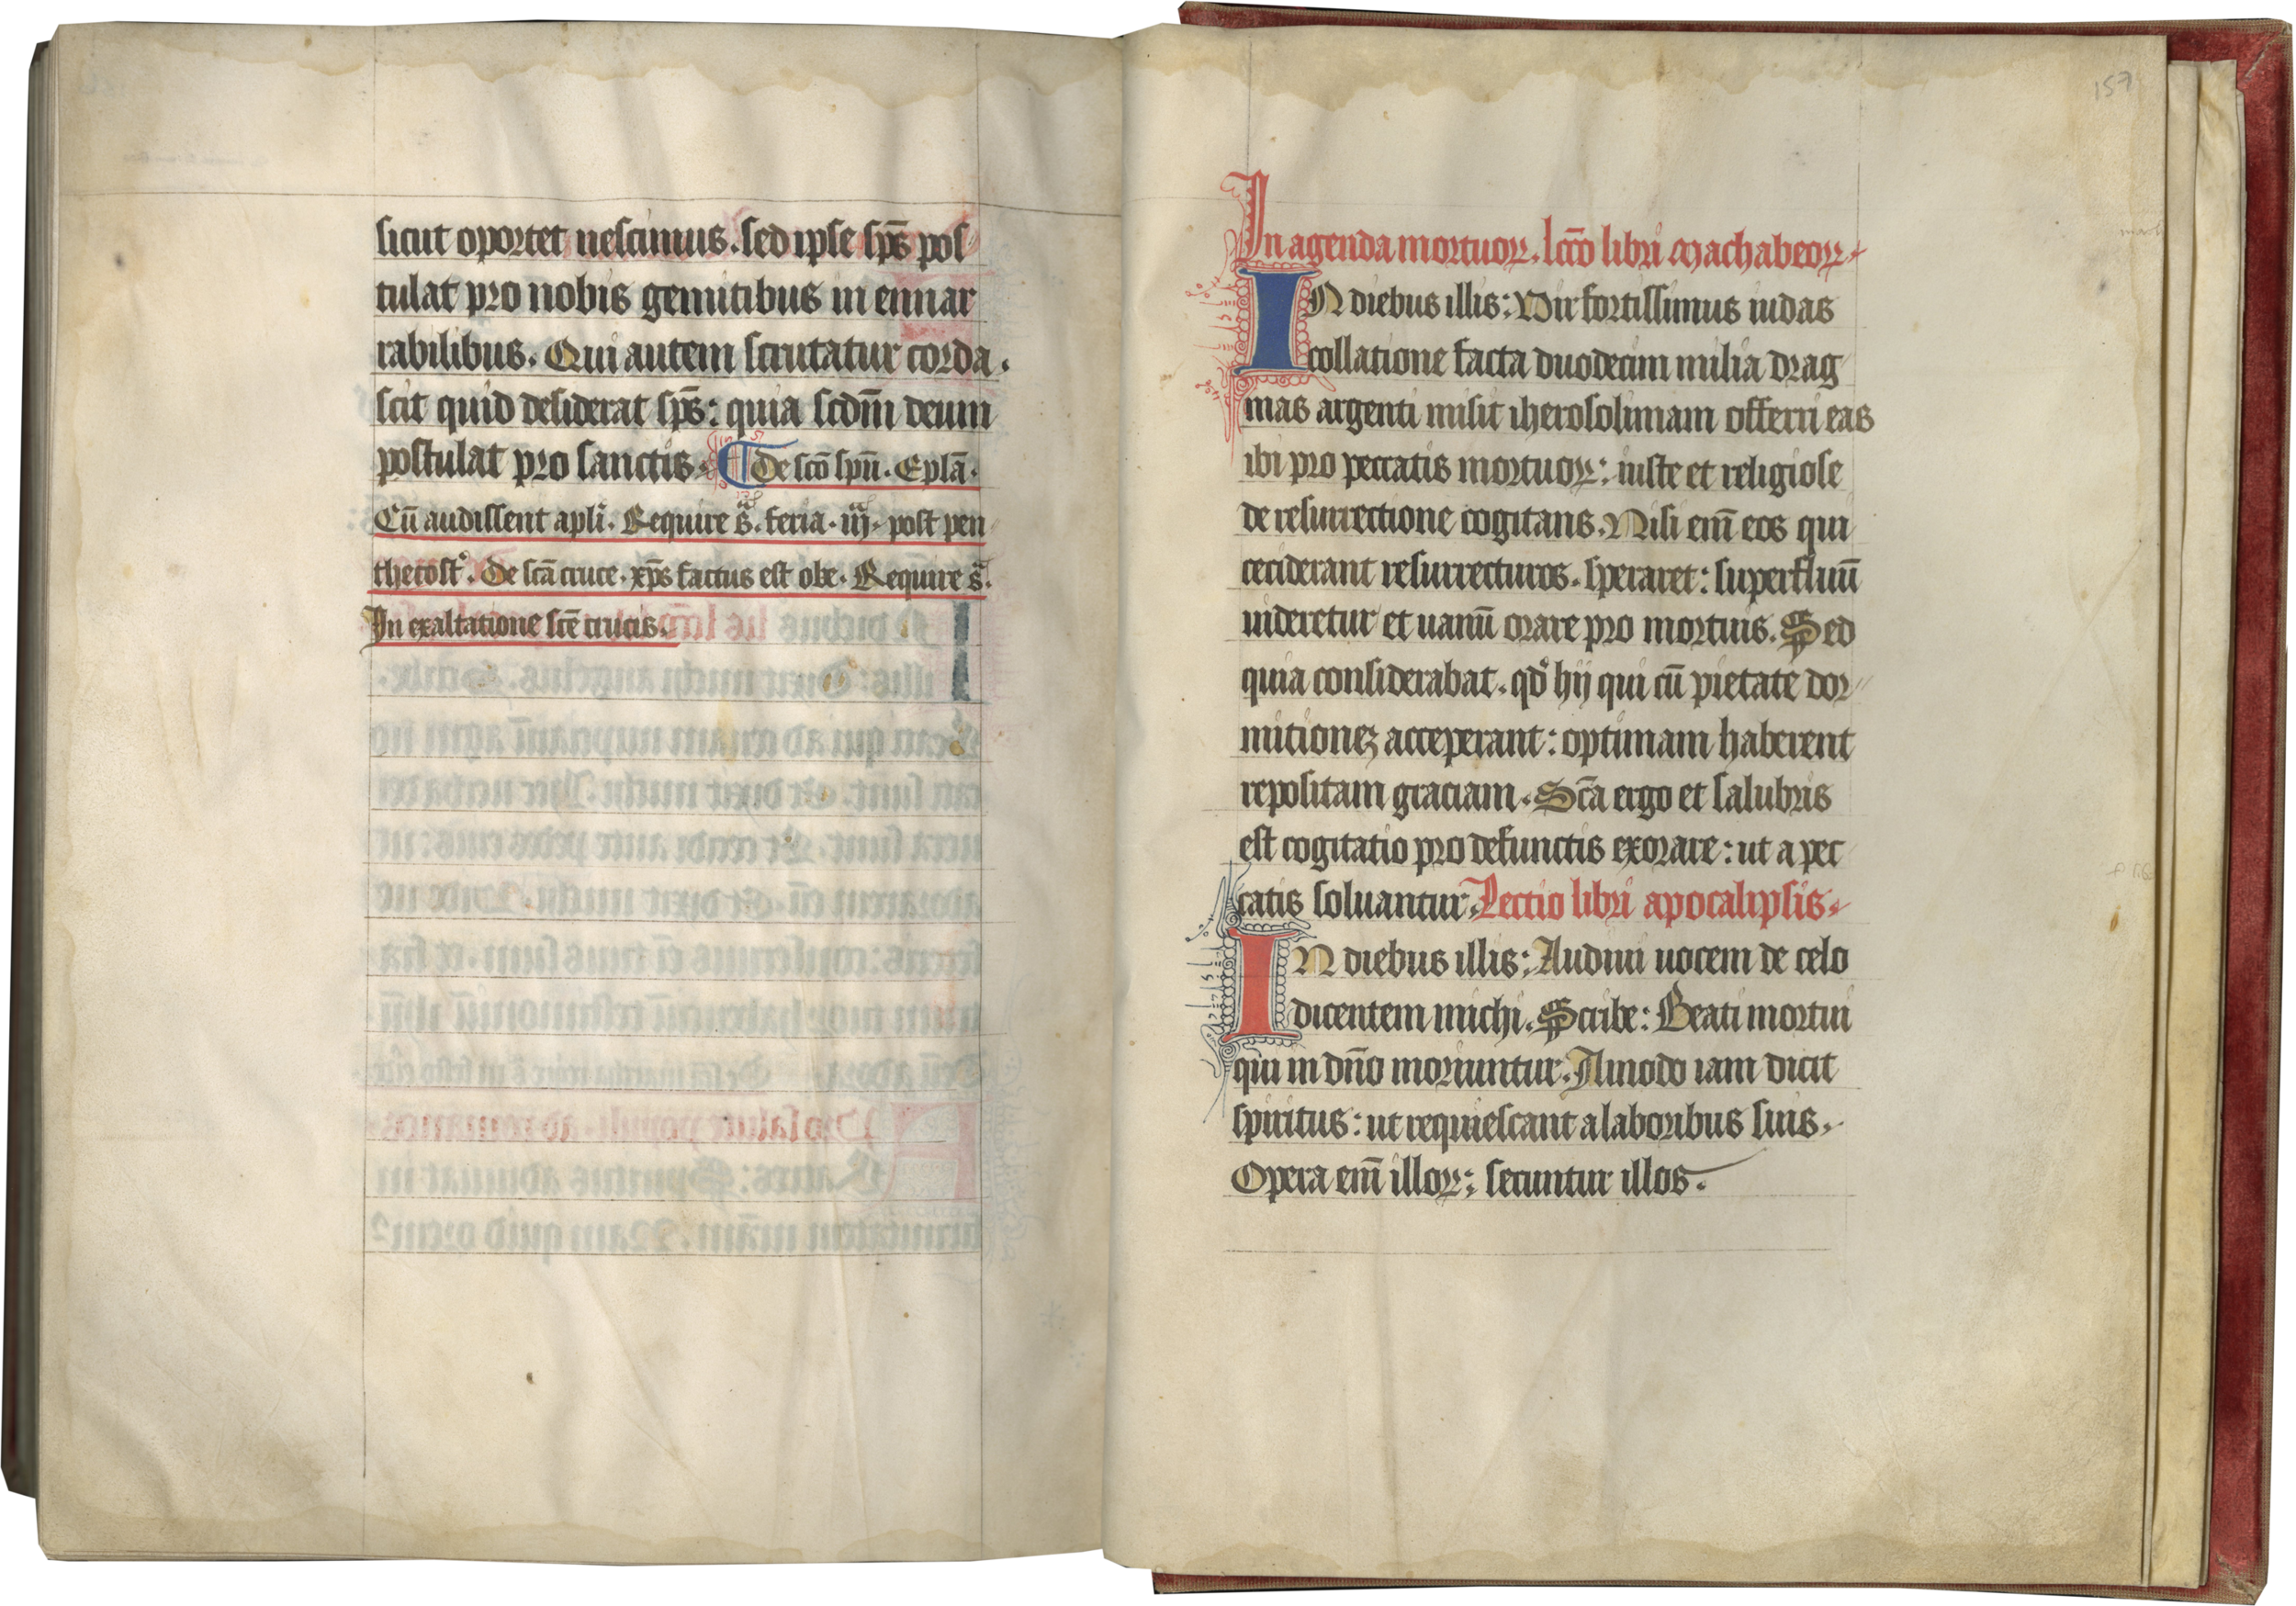 sicut oportet nescimus. sed ipse sp̄s pos
tulat pro nobis gemitibus in ennar
rabilibus. Qui autem scrutatur corda.
scit quid desiderat sp̄s: quia scdm̄ deum
postulat pro sanctis. De sc̄o spū. Eplā.
Cū audissent apl̄i. Require s̄. feria. iij. post pen
thecost̄. De sc̄a cruce. xp̄s factus est obe. Require s̄.
In exaltatione sc̄e crucis.
157
In agenda mortuoꝝ. lcc̄o libri Machabeoꝝ.
IN diebus illis: Vir fortissimus iudas
collatione facta duodecim milia drag
mas argenti misit iherosolimam offerri eas
ibi pro peccatis mortuoꝝ: iuste et religiose
de resurrectione cogitans. Nisi em̄ eos qui
ceciderant resurrecturos. speraret: superfluū
uideretur et uanū orare pro mortuis. Sed
quia considerabat. qd̊ hij qui cū pietate dor
mitionēꝫ acceperant: optimam haberent
repositam graciam. Sc̄a ergo et salubris
est cogitatio pro defunctis exorare: ut a pec
catis soluantur. Lectio libri apocalipsis.
IN diebus illis: Audiui uocem de celo
dicentem michi. Scribe: Beati mortui
qui in dn̄o moriuntur. Amodo iam dicit
spiritus: ut requiescant a laboribus suis.
Opera em̄ illoꝝ: secuntur illos.